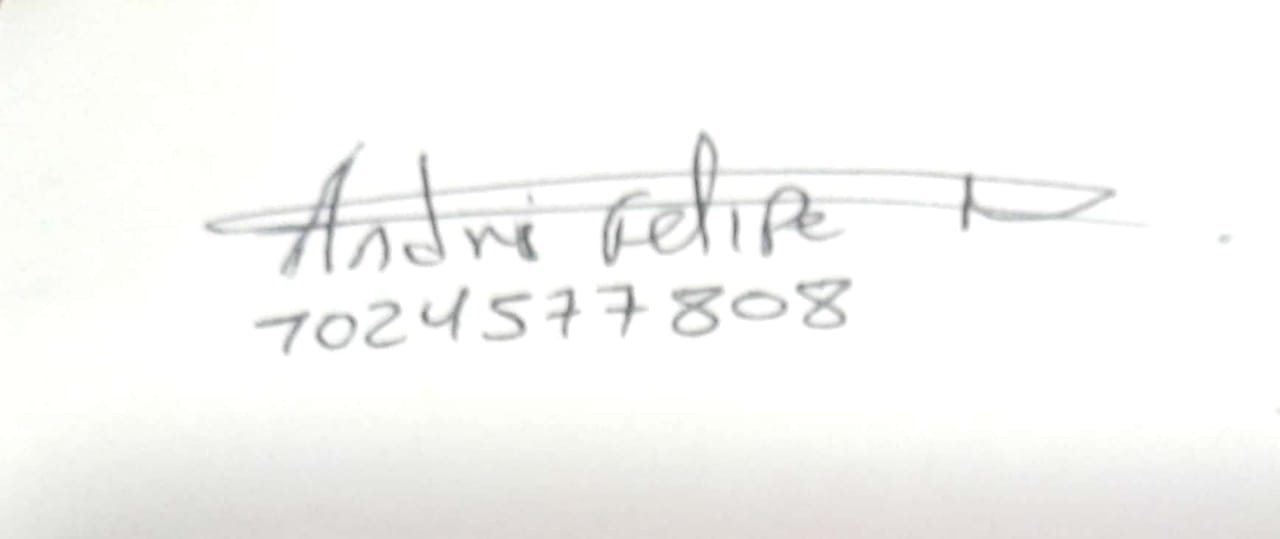 Andri Felipe
1024577808